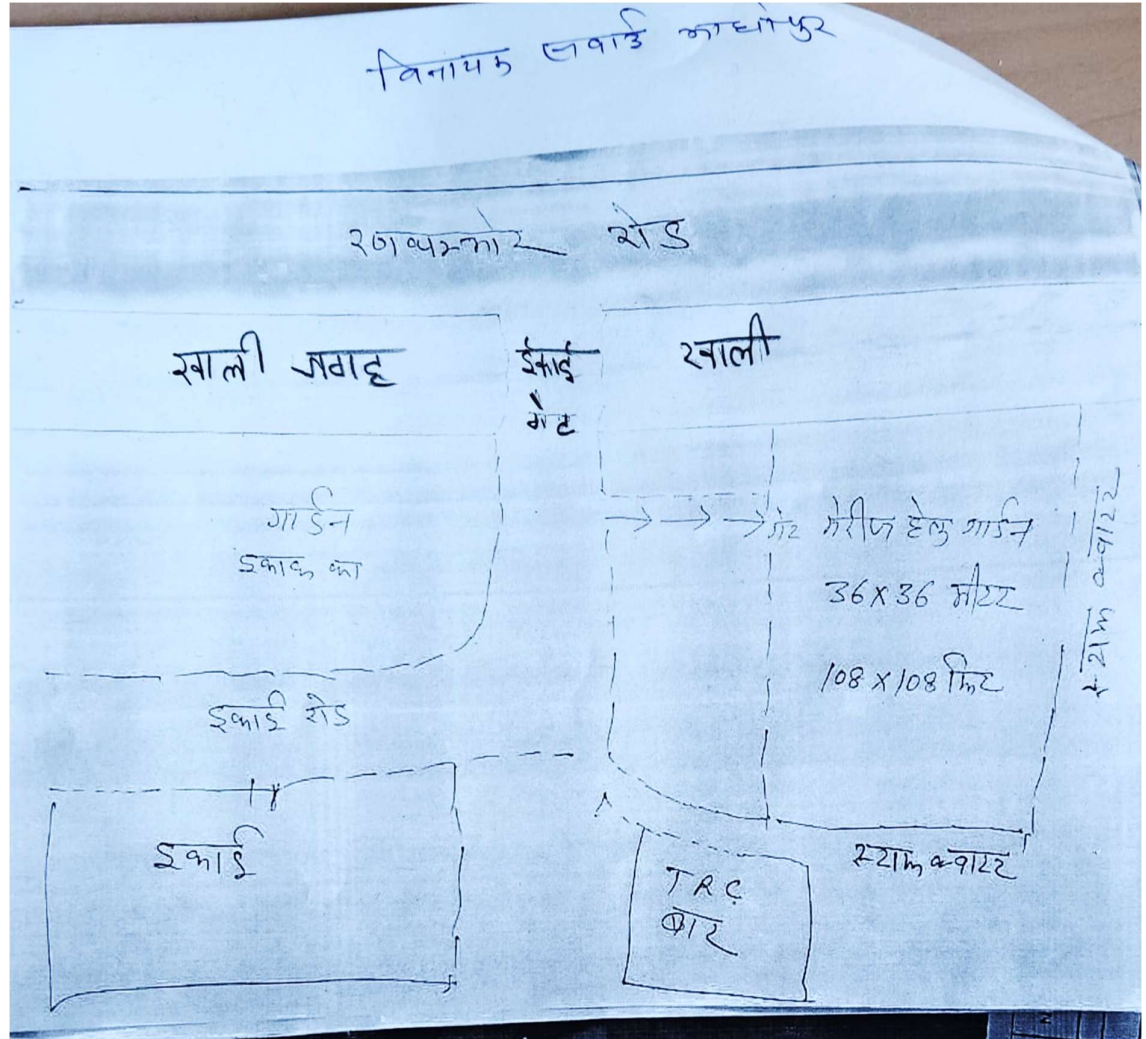 विनायक सवाई माधोपुर
रणथम्भोर रोड
खाली जगह
ईकाई
गेट
खाली
गार्डन
इकाई का
गेट मेरीज हेतु गार्डन
36 X 36 मीटर
108 X 108 फिट
स्टाफ क्वाटर
इकाई रोड
इकाई
स्टाफ क्वाटर
TRC
बार